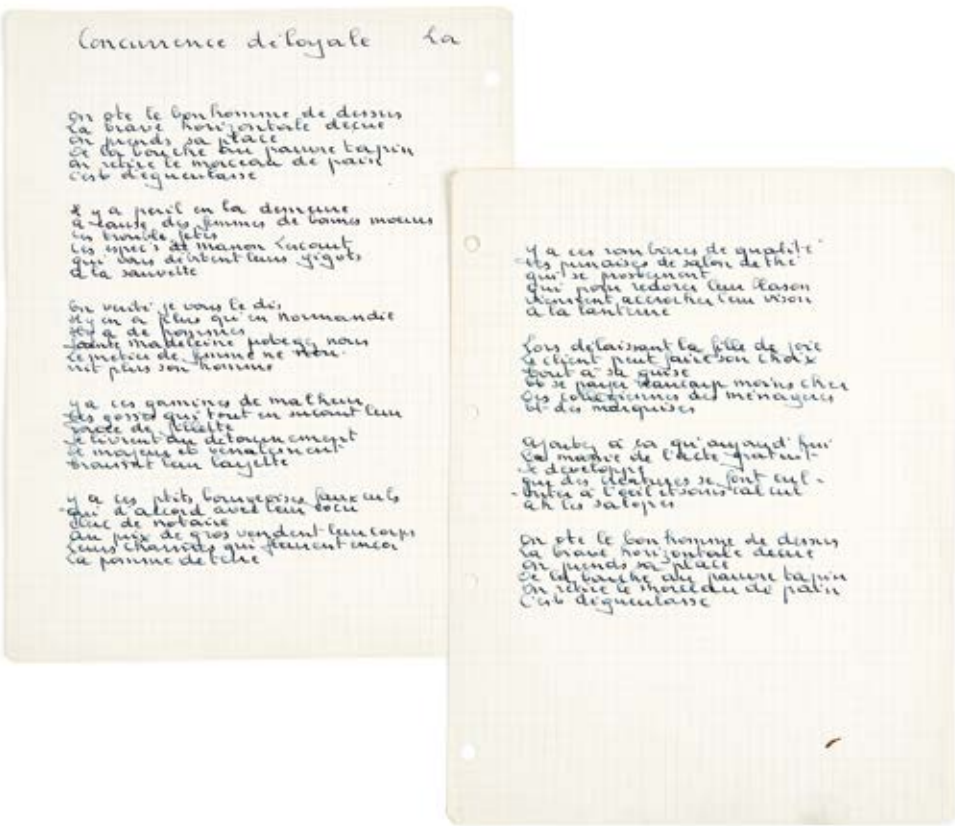 Concurrence déloyale La
on ote le bonhomme de dessus
La brave horizontale décue
on prends sa place
de la bouche au pauvre tapin
on retire le morceau de pain
c'est dégueulasse
Il y a peril en la demeure
à cause des femmes de bonnes moeurs
Ces trouble fetes
Ces espec's de manon Lescaut
qui vous débitent leurs gigots
à la sauvette
En verité je vous le dis
Il y en a plus qu'en Normandie
Il y a de pommes
Sainte madeleine nous
Le metier de femme ne nour-
rit plus son homme
y a ces gamines de malheur
Ces gosses qui tout en sucant leur
pouce de fillette
Se livrent au detournement
de majeur et venalement
trouss'nt leur layette
y a ces ptits bourgeoises faux culs
qui d'accord avec leur cocu
clerc de notaire
au prix de gros vendent leur corps
Leurs charmes qui fleurent encor
La pomme de terre
Y a ces rombieres de qualité
Ces punaises de salon de thé
qui se prosternent
qui pour redorer leur blason
viennent accrocher leur vison
à la lanterne
Lors délaissant la fille de joie
Le client peut faire son choix
tout à sa guise
et se payer beaucoup moins cher
Des collégiennes des ménagères
et des marquises
Ajoutez à ca qu'aujourd'hui
La manie de l'acte gratuit
Se developpe
que des créatures se font cul-
buter à l'oeil et sans calcul
ah les salopes
on ote le bonhomme de dessus
La brave horizontale decue
on prends sa place
de la bouche au pauvre tapin
on retire le morceau de pain
C'est dégueulasse